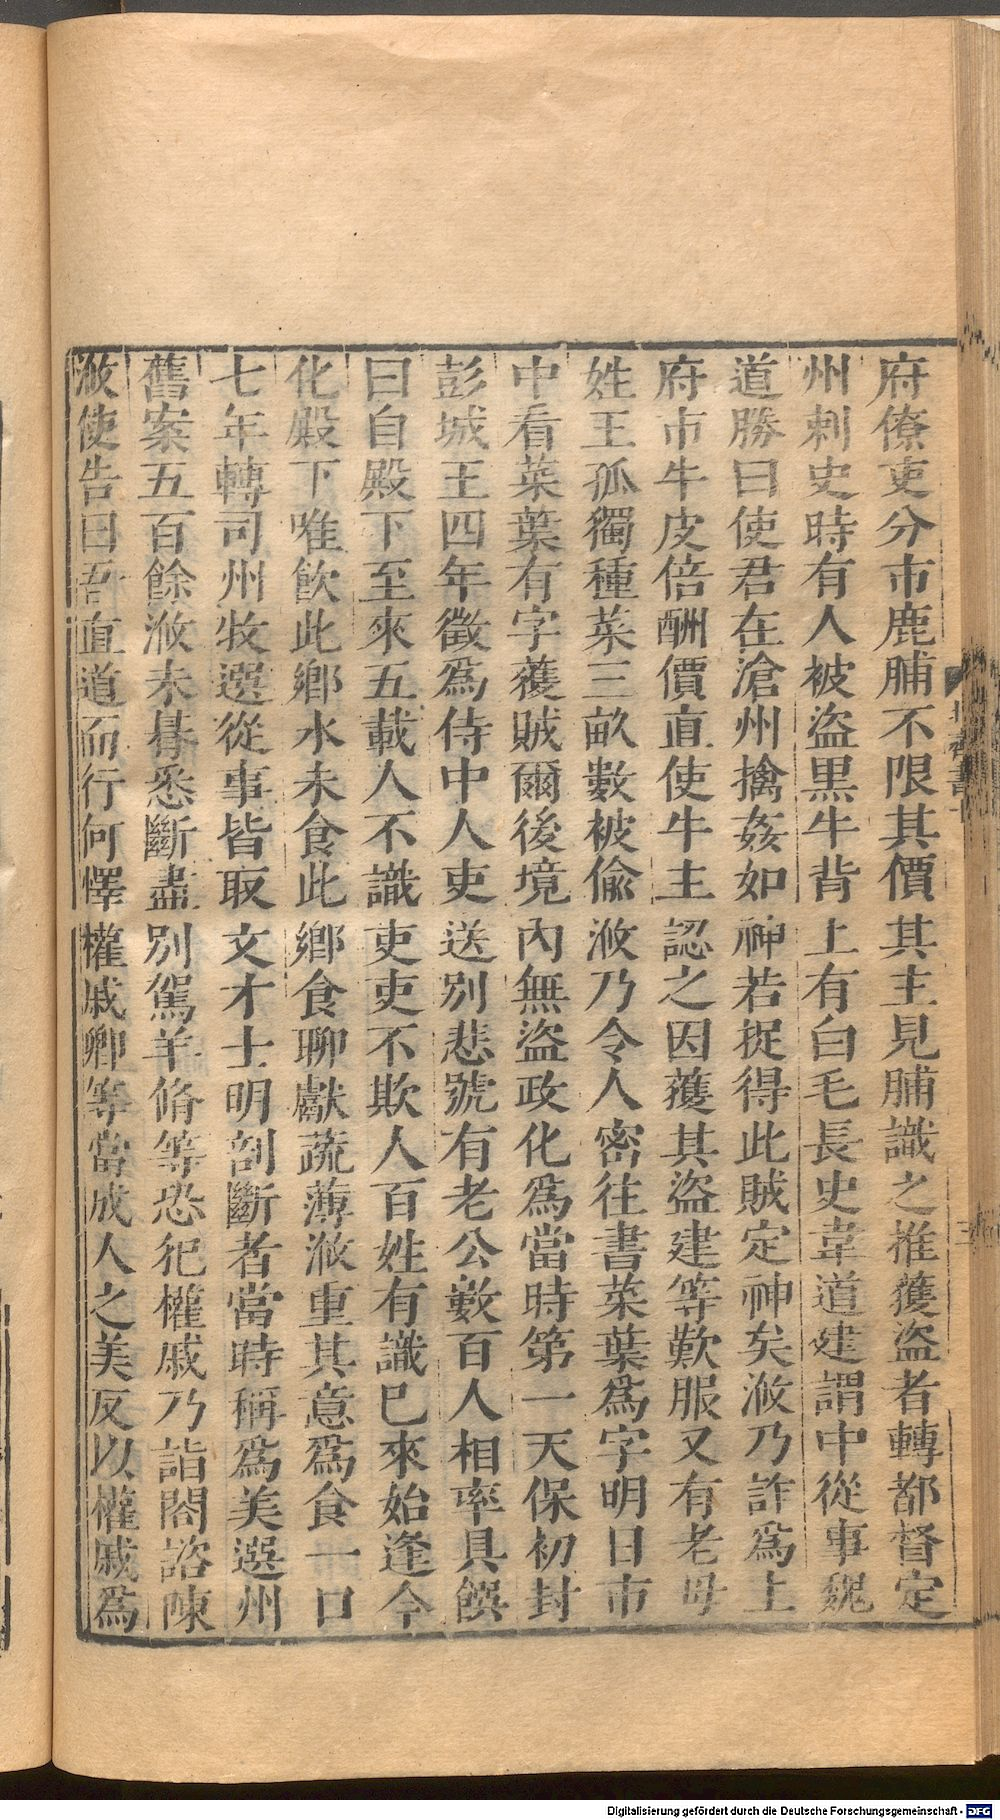 府僚吏分市鹿脯不限其價其主見脯識之推獲盜者轉都督定
州刺史時有人被盜黑牛背上有白毛長史韋道建謂中從事魏
道勝曰使君在滄州擒姦如神若捉得此賊定神矣浟乃詐爲上
府市牛皮倍酬價直使牛主認之因獲其盜建等歎服又有老母
姓王孤獨種菜三畝數被偷浟乃令人密往書菜葉爲字明日市
中看菜葉有字獲賊爾後境內無盜政化爲當時第一天保初封
彭城王四年徵爲侍中人吏送別悲號有老公數百人相率具饌
曰自殿下至來五載人不識吏吏不欺人百姓有識已來始逢今
化殿下唯飲此鄉水未食此鄉食聊獻蔬薄浟重其意爲食一口
七年轉司州牧選從事皆取文才士明剖斷者當時稱爲美選州
舊案五百餘浟未朞悉斷盡別駕羊脩等恐犯權戚乃詣閤諮陳
浟使告曰吾直道而行何憚權戚卿等當成人之美反以權戚爲
Digitalisierung gefördert durch die Deutsche Forschungsgemeinschaft - DFG